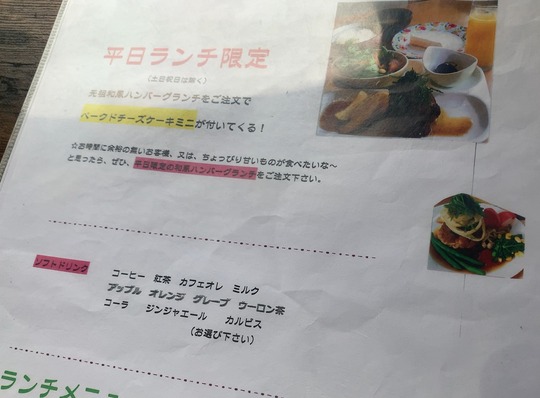 平日ランチ限定
(土日祝日は除く)
元祖和風ハンバーグランチをご注文で
ベークドチーズケーキミニが付いてくる！
☆お時間に余裕の無いお客様、又は、ちょっぴり甘いものが食べたいな～
と思ったら、ぜひ、平日限定の和風ハンバーグランチをご注文下さい。
ソフトドリンク
コーヒー 紅茶 カフェオレ ミルク
アップル オレンジ グレープ ウーロン茶
コーラ ジンジャエール カルピス
(お選び下さい)
ランチメニュ